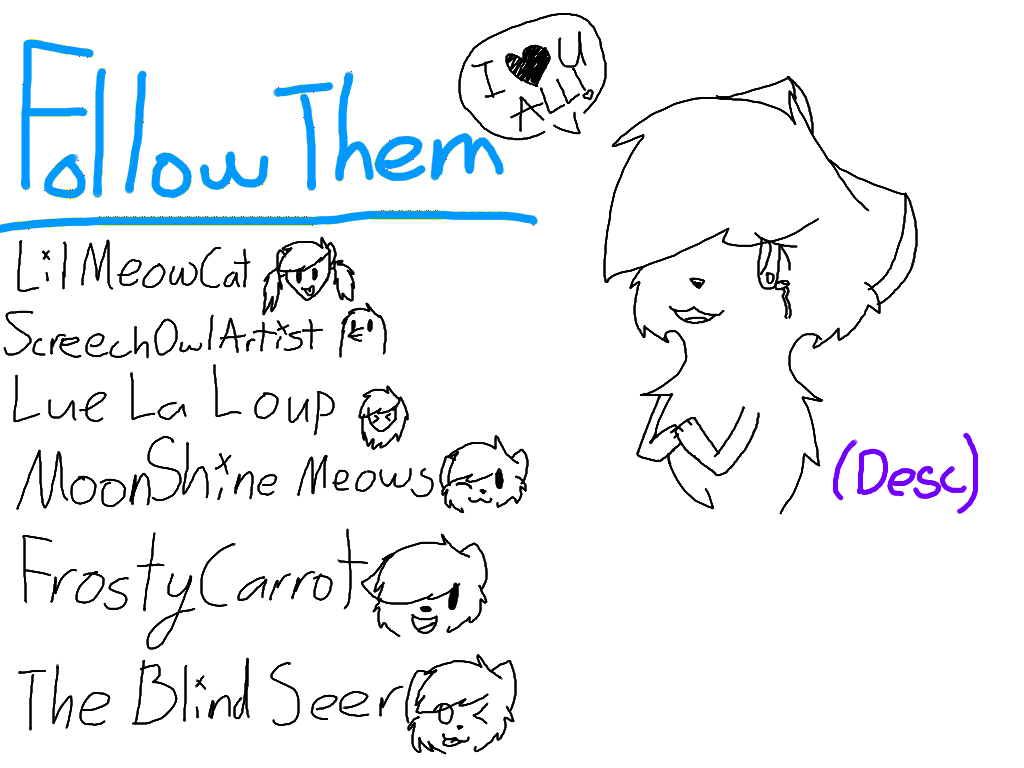 Follow Them
I ♥ U
ALL!
Lil MeowCat
ScreechOwlArtist
Lue La Loup
MoonShine Meows
FrostyCarrot
The Blind Seer
(Desc)